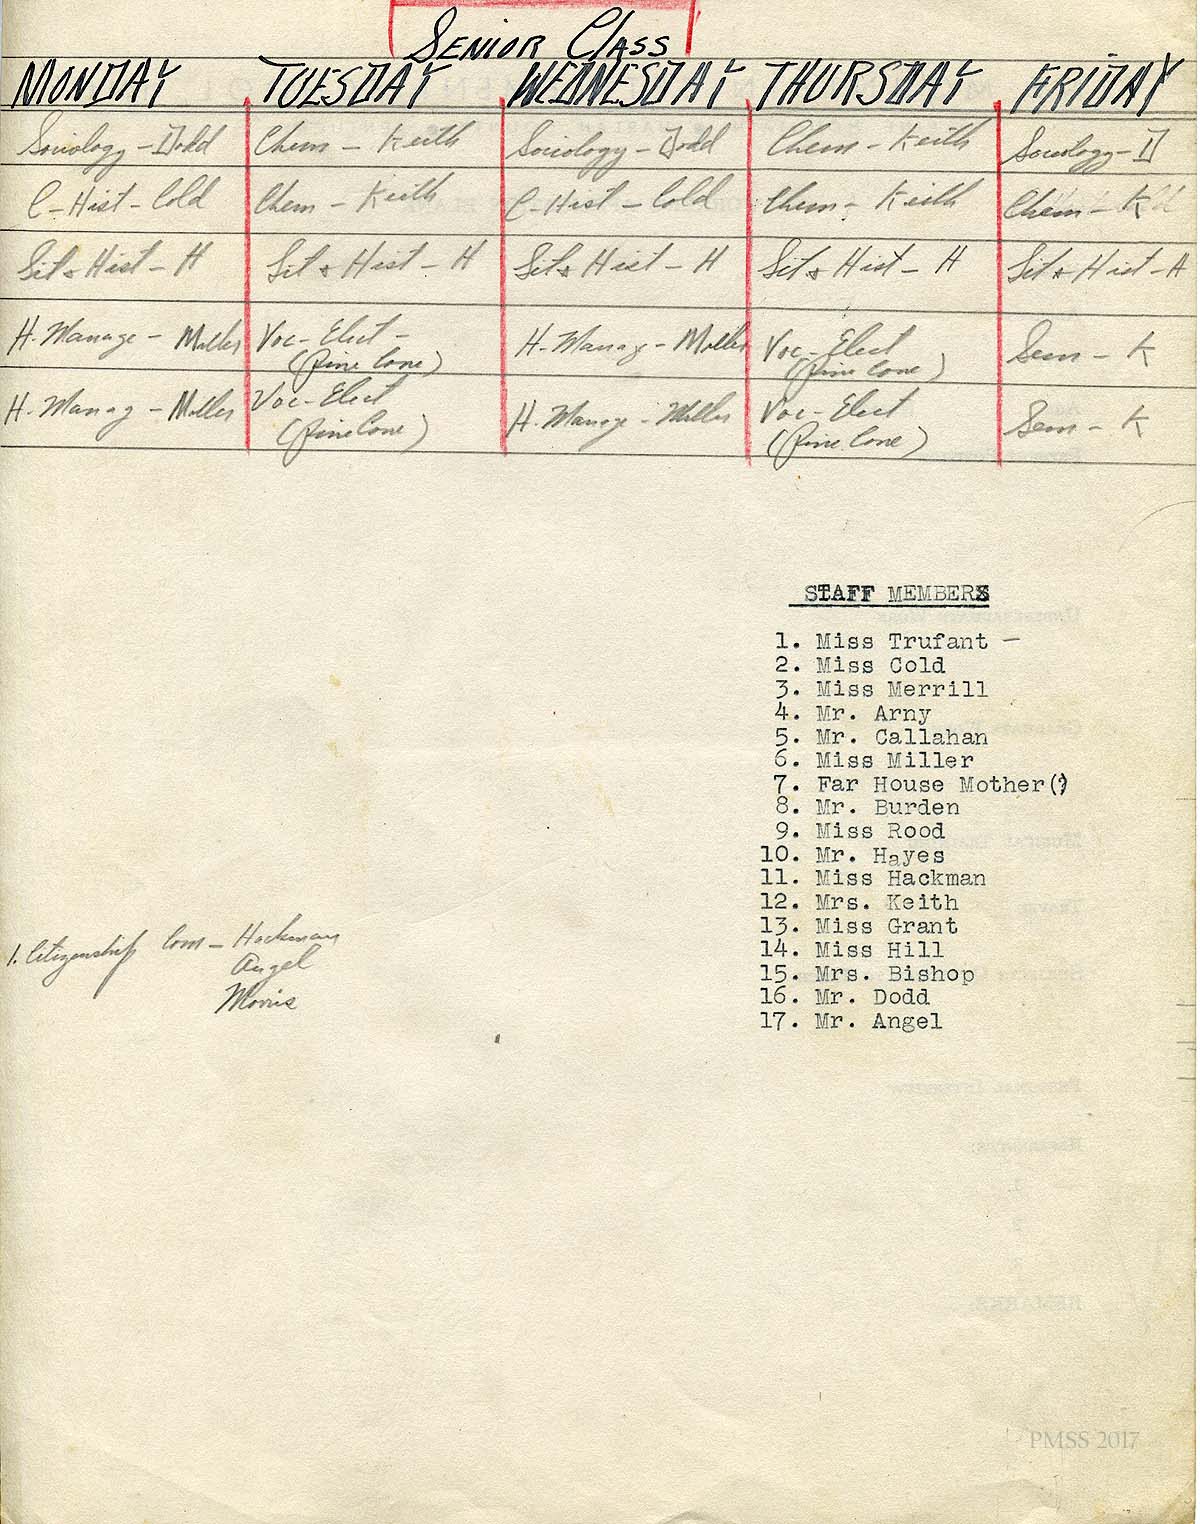 Senior Class
MONDAY TUESDAY WEDNESDAY THURSDAY FRIDAY
Sociology-Dodd Chem - Keith Sociology - Dodd Chem - Keith Sociology-D
C-Hist-Cold Chem - Keith C-Hist - Cold Chem - Keith Chem - K
Lit & Hist - H Lit & Hist - H Lit & Hist - H Lit & Hist - H Lit & Hist - H
H. Manage - Miller Voc-Elect - H-Manag - Miller Voc-Elect Sem - K
(Pine Cone) (Pine Cone)
H. Manag - Miller Voc-Elect H. Manage - Miller Voc-Elect Sem - K
(Pine Cone) (Pine Cone)
STAFF MEMBERS
1. Miss Trufant -
2. Miss Cold
3. Miss Merrill
4. Mr. Arny
5. Mr. Callahan
6. Miss Miller
7. Far House Mother(?)
8. Mr. Burden
9. Miss Rood
10. Mr. Hayes
11. Miss Hackman
12. Mrs. Keith
13. Miss Grant
14. Miss Hill
15. Mrs. Bishop
16. Mr. Dodd
17. Mr. Angel
1. Citizenship Com - Hackman
Angel
Morris
PMSS 2017